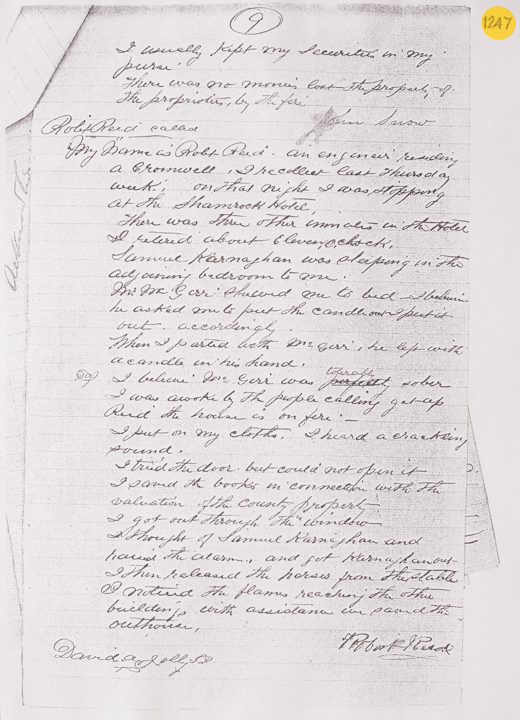 9
1247
I usually kept my securities in my
purse.
There was no monies lost the property of
the proprietor, by the fire
John Snow
Robt Reid called
My Name is Robt Reid. an engineer residing
a Cromwell, I recollect last Thursday
week, on that night I was stopping
at the Shamrock Hotel,
There was three other inmates in the Hotel
I retired about Eleven oclock,
Samuel Karnaghan was sleeping in the
adjoining bedroom to me.
Mr Mc Girr Shewed me to bed I believe
he asked me to put the candle out I put it
out accordingly
When I parted with Mc Girr, he left with
a candle in his hand.
I believe Mc Girr was perfectly sober
I was awoke by the people calling get up
Reid the house is on fire. —
I put on my cloths. I heard a cracking
sound.
I tried the door but could not open it
I saved the books in connection with the
valuation of the County property
I got out through the window
I thought of Samuel Karnaghan and
raised the alarm, and got Karnaghan out
I then released the horses from the stable
I noticed the flames reaching the other
buildings with assistance we saved the
outhouse.
Robert Reid
David A Jolly